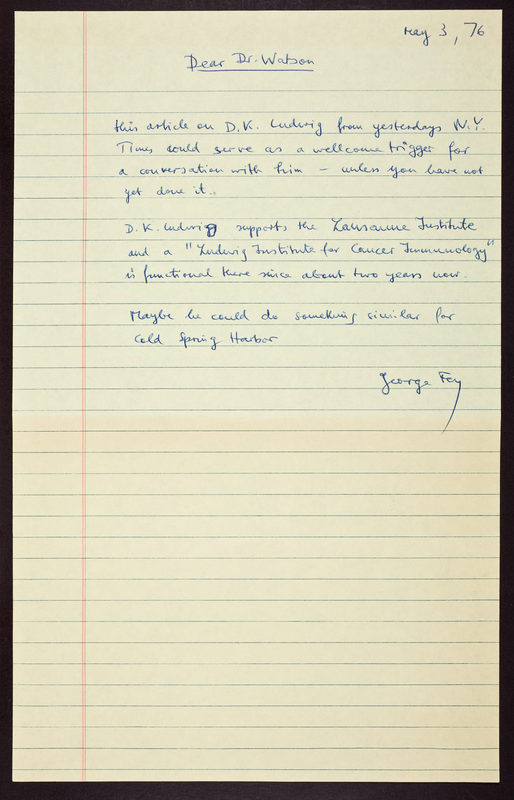 May 3, 76
Dear Dr. Watson
this article on D.K. Ludwig from yesterdays N.Y.
Times could serve as a wellcome trigger for
a conversation with him – unless you have not
yet done it.
D.K. Ludwig supports the Lausanne Institute
and a "Ludwig Institute for Cancer Immunology"
is functional there since about two years now.
Maybe he could do something similar for
Cold Spring Harbor
George Fey